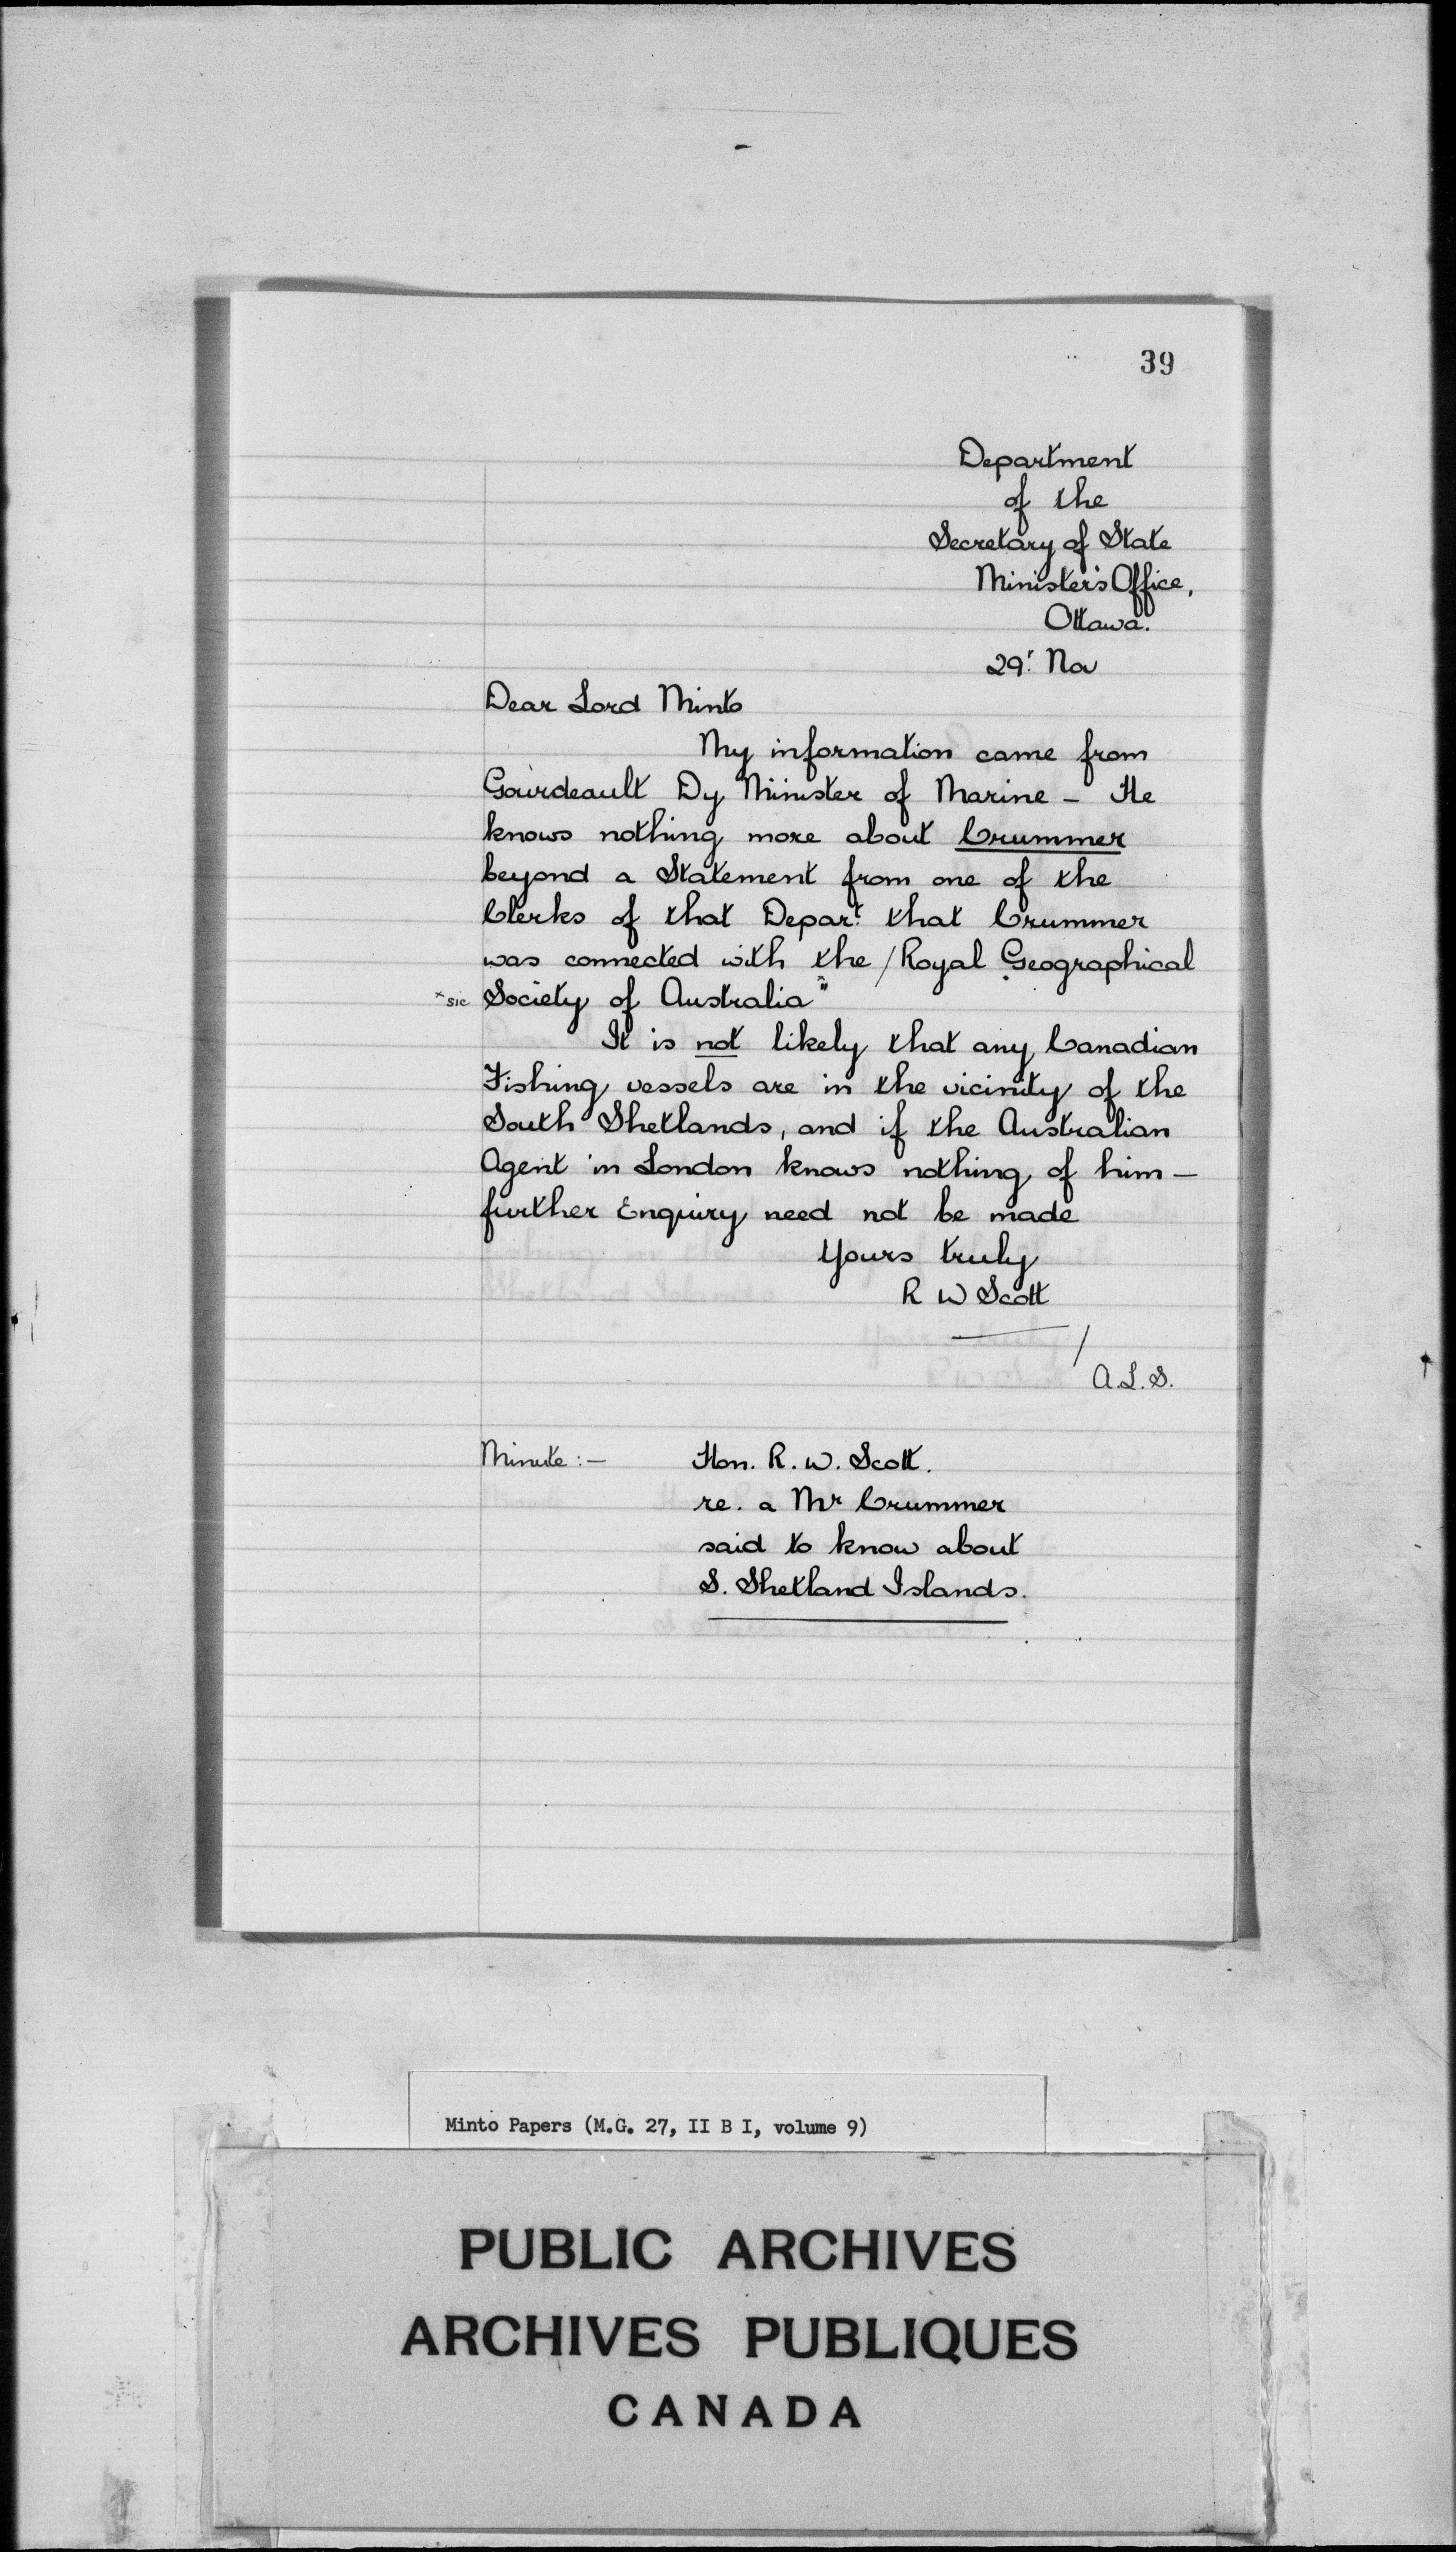 39
Department
of the
Secretary of State
Minister's Office,
Ottawa.
29! Nov
Dear Lord Minto
My information came from
Gourdeault Dy Minister of Marine – He
knows nothing more about Crummer
beyond a Statement from one of the
Clerks of that Depart: that Crummer
was connected with the /Royal Geographical
*sic Society of Australia*"
It is not likely that any Canadian
Fishing vessels are in the vicinity of the
South Shetlands, and if the Australian
Agent in London knows nothing of him –
further Enquiry need not be made
Yours truly
R W Scott
/
A.L.S.
Minute :– Hon. R. W. Scott.
re. a Mr Crummer
said to know about
S. Shetland Islands.
Minto Papers (M.G. 27, II B I, volume 9)
PUBLIC ARCHIVES
ARCHIVES PUBLIQUES
CANADA